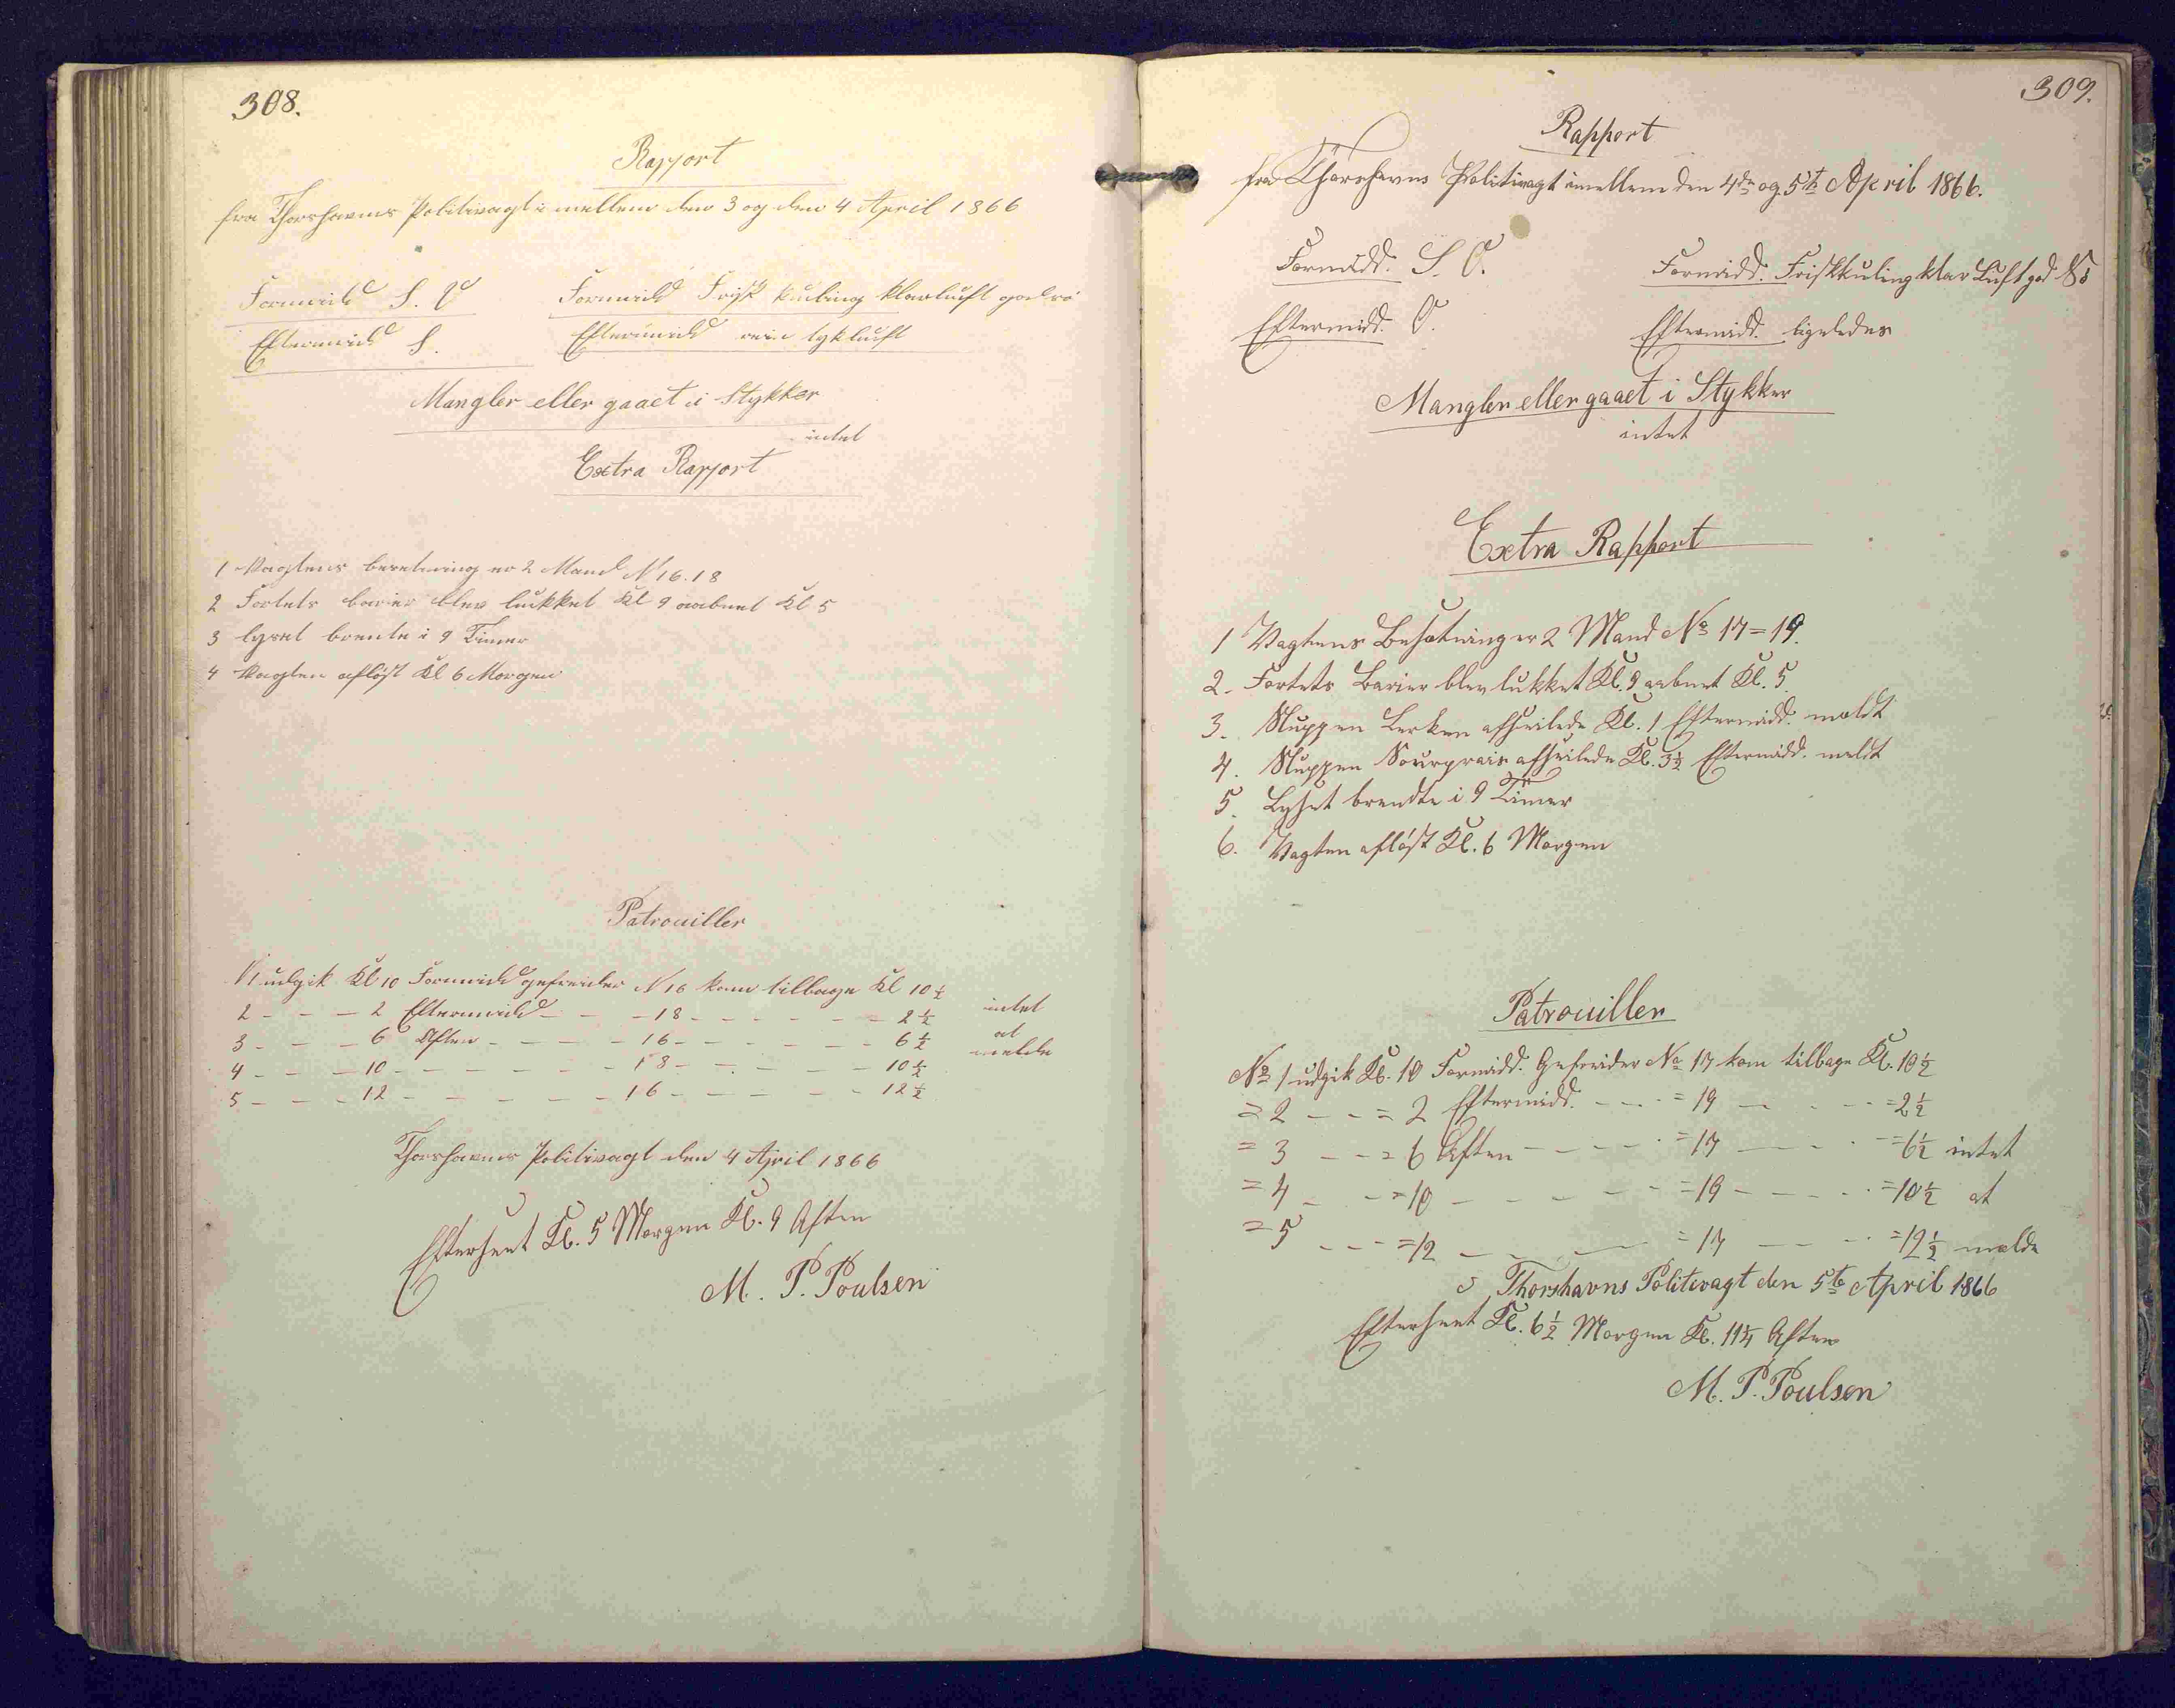 308.
Rapport
fra Thorshavns Politivagt imellem den 3 og den 4 April 1866
Formidd S. O Formidd Frisk kuling klarluft god sø
Eftermidd S. Eftermidd tykluft
Mangler eller gaaet i Stykker
intet
Extra Rapport
1 Vagtens besetning er 2 Mand N 16. 18
2 Fortets barier blev lukket Kl 9 aabnet Kl 5
3 lyset brente i 9 Timer
4 Vagten afløst Kl 6 Morgen
Patrouiller
N 1 udgik Kl 10 Formidd gefreider N 16 kom tilbage Kl 10 ½
2 - - - 2 Eftermidd - - - 18 - - - - - - 2 ½ intet
3 - - - 6 Aften - - - - 16 - - - - - - 6 ½ at
4 - - - 10 - - - - - - 18 - - - - - - 10 ½ melde
5 - - - 12 - - - - - - 16 - - - - - - 12 ½
Thorshavns Politivagt den 4 April 1866
Efterseet Kl. 5 Morgen Kl. 9 Aften
M. P. Poulsen
309.
Rapport
fra Thorshavns Politivagt imellem den 4de og 5te April 1866.
Formidd. S. O. Formidd. Friskkuling klar Luft god Sø
Eftermidd. O. Eftermidd. ligeledes
Mangler eller gaaet i Stykker
intet
Extra Rapport
1 Vagtens Besætning er 2 Mand No 17 = 19.
2. Fortets Barier blev lukket Kl. 9 aabnet Kl. 5.
3. Sluppen Lerken afseilede Kl. 1 Eftermidd. meldt
4. Sluppen Sourprais afseilede Kl. 3½ Eftermidd. meldt
5. Lyset brendte i 9 Timer
6. Vagten afløst Kl. 6 Morgen
Patrouiller
No 1 udgik Kl. 10 Formidd. Gefreider No 17 kom tilbage Kl. 10 ½
= 2 - - = 2 Eftermidd. - - - = 19 - - - - = 2 ½
= 3 - - = 6 Aften - - - - = 17 - - - - = 6 ½ intet
= 4 - - = 10 - - - - - - = 19 - - - - = 10 ½ at
= 5 - - - = 12 - - - - = 17 - - - - = 12 ½ melde
Thorshavns Politivagt den 5te April 1866
Efterseet Kl. 6 ½ Morgen Kl. 11¼ Aften
M. P. Poulsen